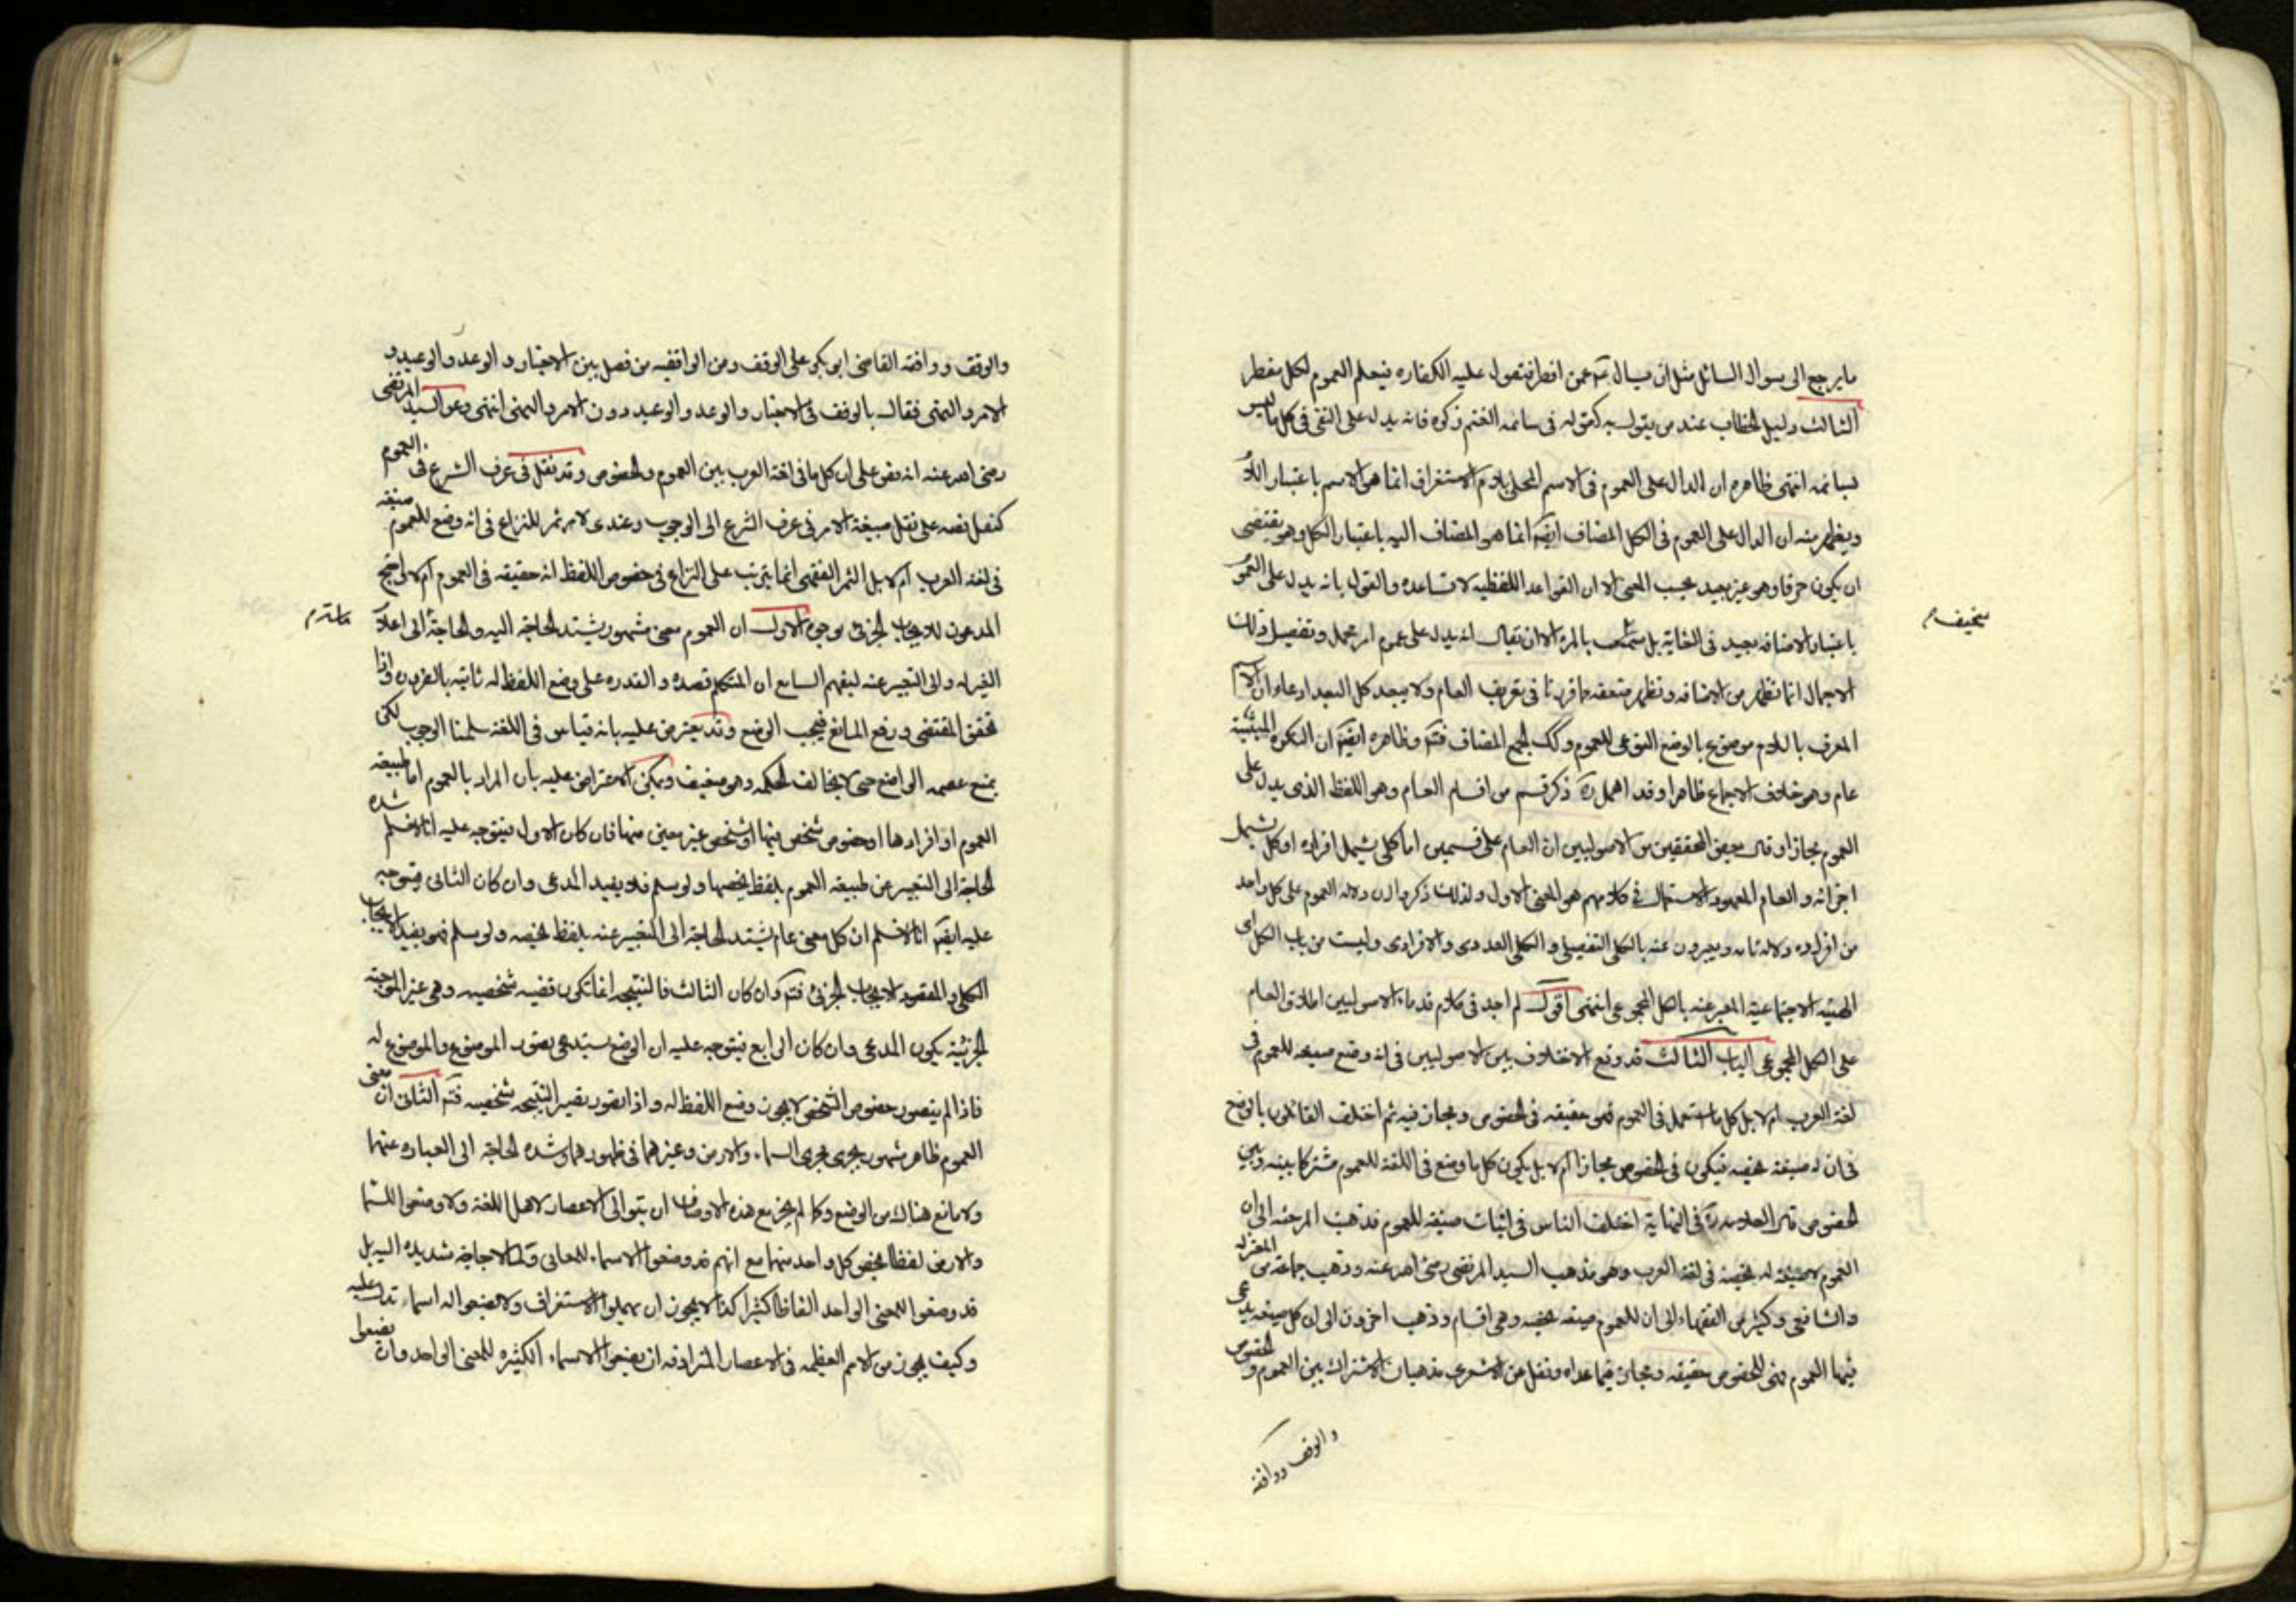 ما يرجع الى سوال السائل مثل ان يسال عمن افطر فيقول عليه الكفاره فيعلم العموم لكل مفطر
الثالث دليل الخطاب عند من يقول به كقوله فى سائمه الغنم زكوه فانه يدل على النفى فى كل ما ليس
بسائمه انتهى ظاهره ان الدال على العموم فى الاسم المحلى بلام الاستغراق انما هو الاسم باعتبار اللام
ويظهر منه ان الدال على العموم فى الكل المضاف ايضا انما هو المضاف اليه باعتبار الكل وهو يقتضى
ان يكون حرفا وهو غير بعيد بحسب المعنى الا ان القواعد اللفظيه لا تساعده والقول بانه يدل على العموم
باعتبار الاضافه بعيد فى الغاية بل بالمره الا ان يقال انه يدل على عموم امر مجمل وتفصيل ذلك
سخيف م
الاجمال انما تظهر من الاضافه وتظهر ما قررنا فى تعريف العام ولا يبعد كل البعد ادعاء ان الاسم
المعرف باللام موضوع بالوضع النوعى للعموم وكك الجمع المضاف فتم وظاهره ايضا ان النكره المثبتة
عام وهو خلاف الاجماع ظاهرا وقد اهمل ره ذكر قسم من اقسام العام وهو اللفظ الذى يدل على
العموم مجازا وقال بعض المحققين من الاصوليين ان العام على قسمين اما كلى يشمل افراده او كل يشمل
اجزائه والعام المعهود الاستعمال فى كلامهم هو المعنى الاول ولذلك ذكروا ان دلاله العموم على كل واحد
من افراده دلاله تامه ويعبرون عنه بالكلى التفصيلى والكلى العددى والافرادى وليست من باب الكل اى
الهيئه الاجتماعية المعبر عنه بالكل المجموعى انتهى اقول لم اجد فى كلام قدماء الاصوليين اطلاق العام
على الكل المجموعى الباب الثالث قد وقع الاختلاف بين الاصوليين فى انه وضع صيغه للعموم فى
لغة العرب ام لا بل كل ما استعمل فى العموم فهو حقيقه فى الخصوص ومجاز فيه ثم اختلف القائلون بالوضع
فى ان له صيغة تخصه فيكون فى الخصوص مجازا ام لا بل يكون كل ما وضع فى اللغة للعموم مشتركا بينه وبين
الخصوص قال العلامه ره فى النهاية اختلف الناس فى اثبات صيغه للعموم فذهب المرجئه الى ان
العموم لا صيغه له تخصه فى لغة العرب وهو مذهب السيد المرتضى رضى الله عنه وذهب جماعة من المعتزله
والشافعى وكثير من الفقهاء الى ان للعموم صيغه تخصه وهى اقسام وذهب اخرون الى ان كل صيغه يدعى
فيها العموم فهى للخصوص حقيقه ومجاز فيما عداه ونقل عن الاشعرى مذهبان الاشتراك بين العموم والخصوص
والوقف ووافقه
والوقف ووافقه القاضى ابو بكر على الوقف ومن الواقفيه من فصل بين الاخبار والوعد والوعيد و
الامر والنهى فقال بالوقف فى الاخبار والوعد والوعيد دون الامر والنهى انتهى ودعوى السيد المرتضى
رضى الله عنه انه نص على ان كل ما فى لغة العرب بين العموم والخصوص وقد نقل فى عرف الشرع فى العموم
كنقل نصه على نقل صيغة الامر فى عرف الشرع الى الوجوب وعندى لا ثمر للنزاع فى انه وضع للعموم صيغه
فى لغة العرب ام لا بل الثمر الفقهى انما يترتب على النزاع فى خصوص اللفظ انه حقيقه فى العموم ام لا واحتج
المدعون للايجاب الجزئى بوجوه الاول ان العموم معنى مشهور يشتد الحاجه اليه والحاجة الى اعلام
الغير له والى التعبير عنه ليفهم السامع ان المتكلم قصده والقدره على وضع اللفظ له ثابته بالضروره واذا
تحقق المقتضى ورفع المانع فيجب الوضع وقد يعترض عليه بانه قياس فى اللغة سلمنا الوجوب لكن
بمنع عصمه الواضع حتى لا يخالف الحكمه وهو ضعيف ويمكن الاعتراض عليه بان المراد بالعموم اما طبيعه
العموم او افرادها او خصوص شخص منها او شخص غير معين منها فان كان الاول فيتوجه عليه انا لا نسلم شده
الحاجة الى التعبير عن طبيعه العموم بلفظ يخصها ولو سلم فلا يفيد المدعى وان كان الثانى فيتوجه
عليه ايضا انا لا نسلم ان كل معنى عام يشتد الحاجة الى التعبير عنه بلفظ يخصه ولو سلم فهو يفيد الايجاب
الكلى والمقصود الايجاب الجزئى فتم وان كان الثالث فالنتيجه انما تكون قضيه شخصيه وهى غير الموجبه
الجزئية يكون المدعى وان كان الرابع فيتوجه عليه ان الوضع يستدعى تصور الموضوع والموضوع له
فاذا لم يتصور خصوص الشخص لا يجوز وضع اللفظ له واذا تصور تصير النتيجه شخصيه فتم الثانى ان معنى
العموم ظاهر مشهور يجرى مجرى السماء والارض وغيرهما فى ظهورهما وشده الحاجة الى العباره عنهما
ولا مانع هناك من الوضع وكما لم يجز مع هذه الاوصاف ان يتوالى الاعصار لاهل اللغة ولا وضعوا للسماء
والارض لفظا يخص كل واحد منهما مع انهم قد وضعوا الاسماء للمعانى لا حاجة شديده اليه بل
قد وضعوا للمعنى الواحد الفاظا كثيرا كذا لا يجوز ان يهملوا الاستغراق ولا يضعوا له اسماء تدل عليه
وكيف يجوز من الامم العظيمه فى الاعصار المترادفه ان يضعوا الاسماء الكثيره للمعنى الواحد وان يضيعوا